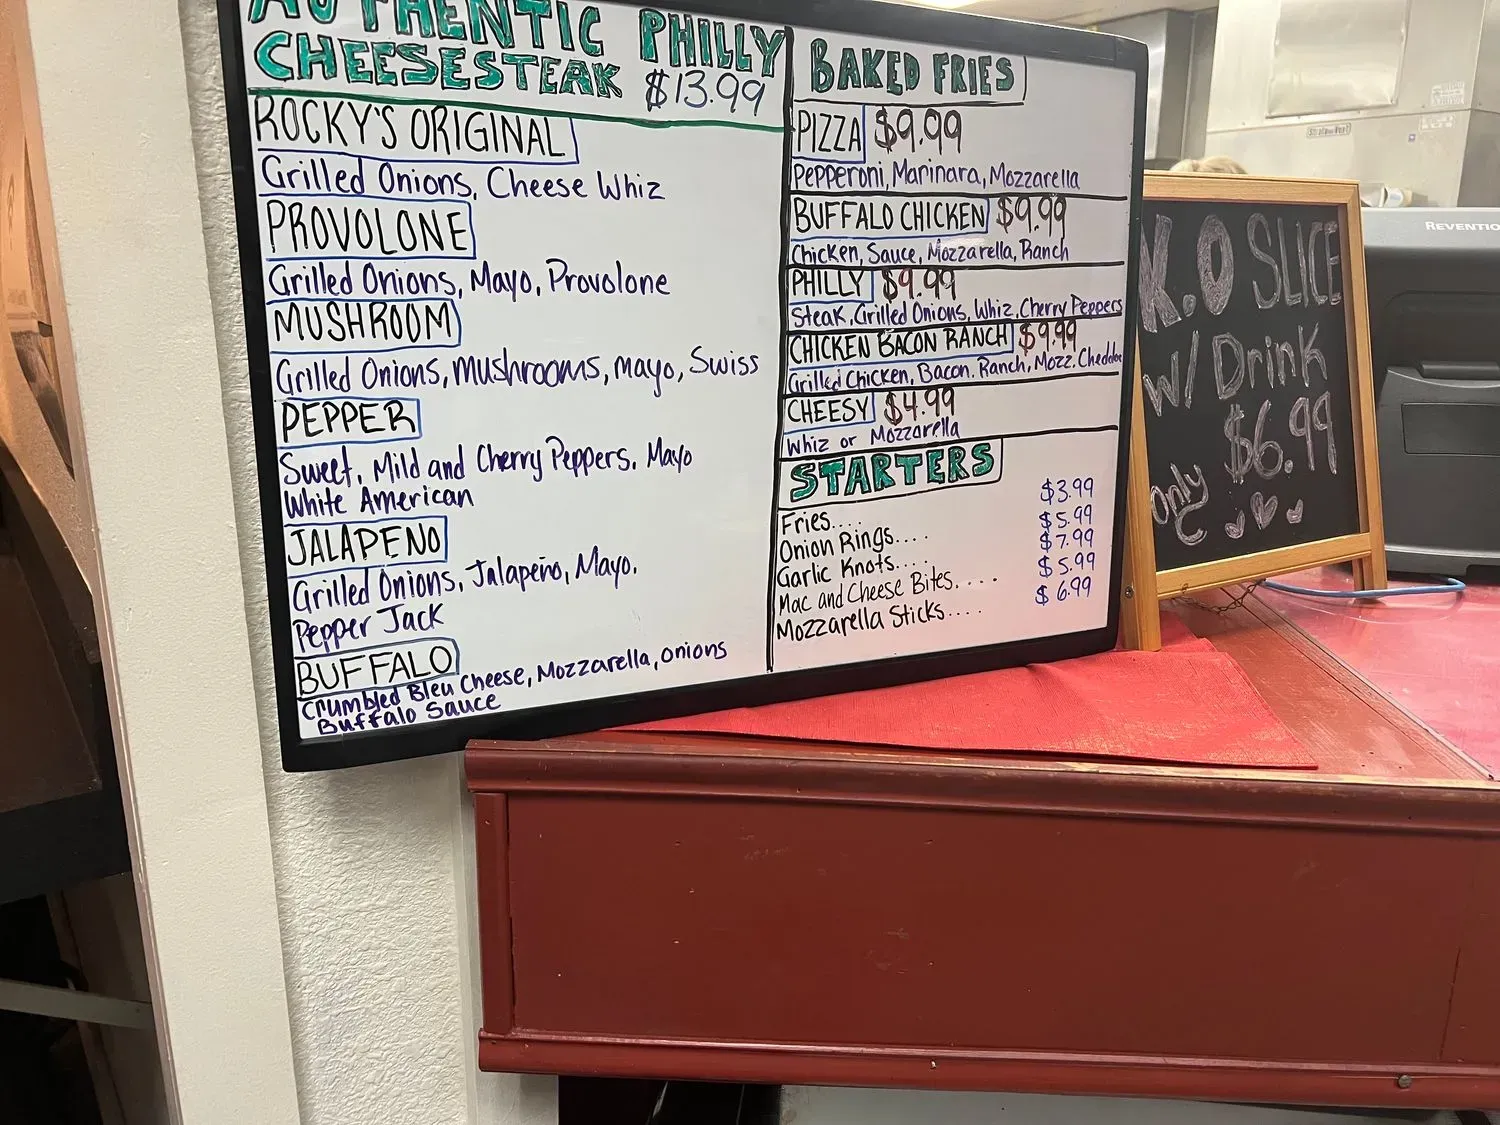 AUTHENTIC PHILLY
CHEESESTEAK $13.99
ROCKY'S ORIGINAL
Grilled Onions, Cheese Whiz
PROVOLONE
Grilled Onions, Mayo, Provolone
MUSHROOM
Grilled Onions, Mushrooms, Mayo, Swiss
PEPPER
Sweet, Mild and Cherry Peppers, Mayo
White American
JALAPENO
Grilled Onions, Jalapeño, Mayo.
Pepper Jack
BUFFALO
Crumbled Bleu Cheese, Mozzarella, onions
Buffalo Sauce
BAKED FRIES
PIZZA $9.99
Pepperoni, Marinara, Mozzarella
BUFFALO CHICKEN $9.99
Chicken, Sauce, Mozzarella, Ranch
PHILLY $9.99
Steak, Grilled Onions, Whiz, Cherry Peppers
CHICKEN BACON RANCH $9.99
Grilled Chicken, Bacon, Ranch, Mozz, Cheddar
CHEESY $4.99
Whiz or Mozzarella
STARTERS
Fries.... $3.99
Onion Rings.... $5.99
Garlic Knots.... $7.99
Mac and Cheese Bites.... $5.99
Mozzarella Sticks.... $6.99
K.O SLICE
w/ Drink
$6.99
only
REVENTIO